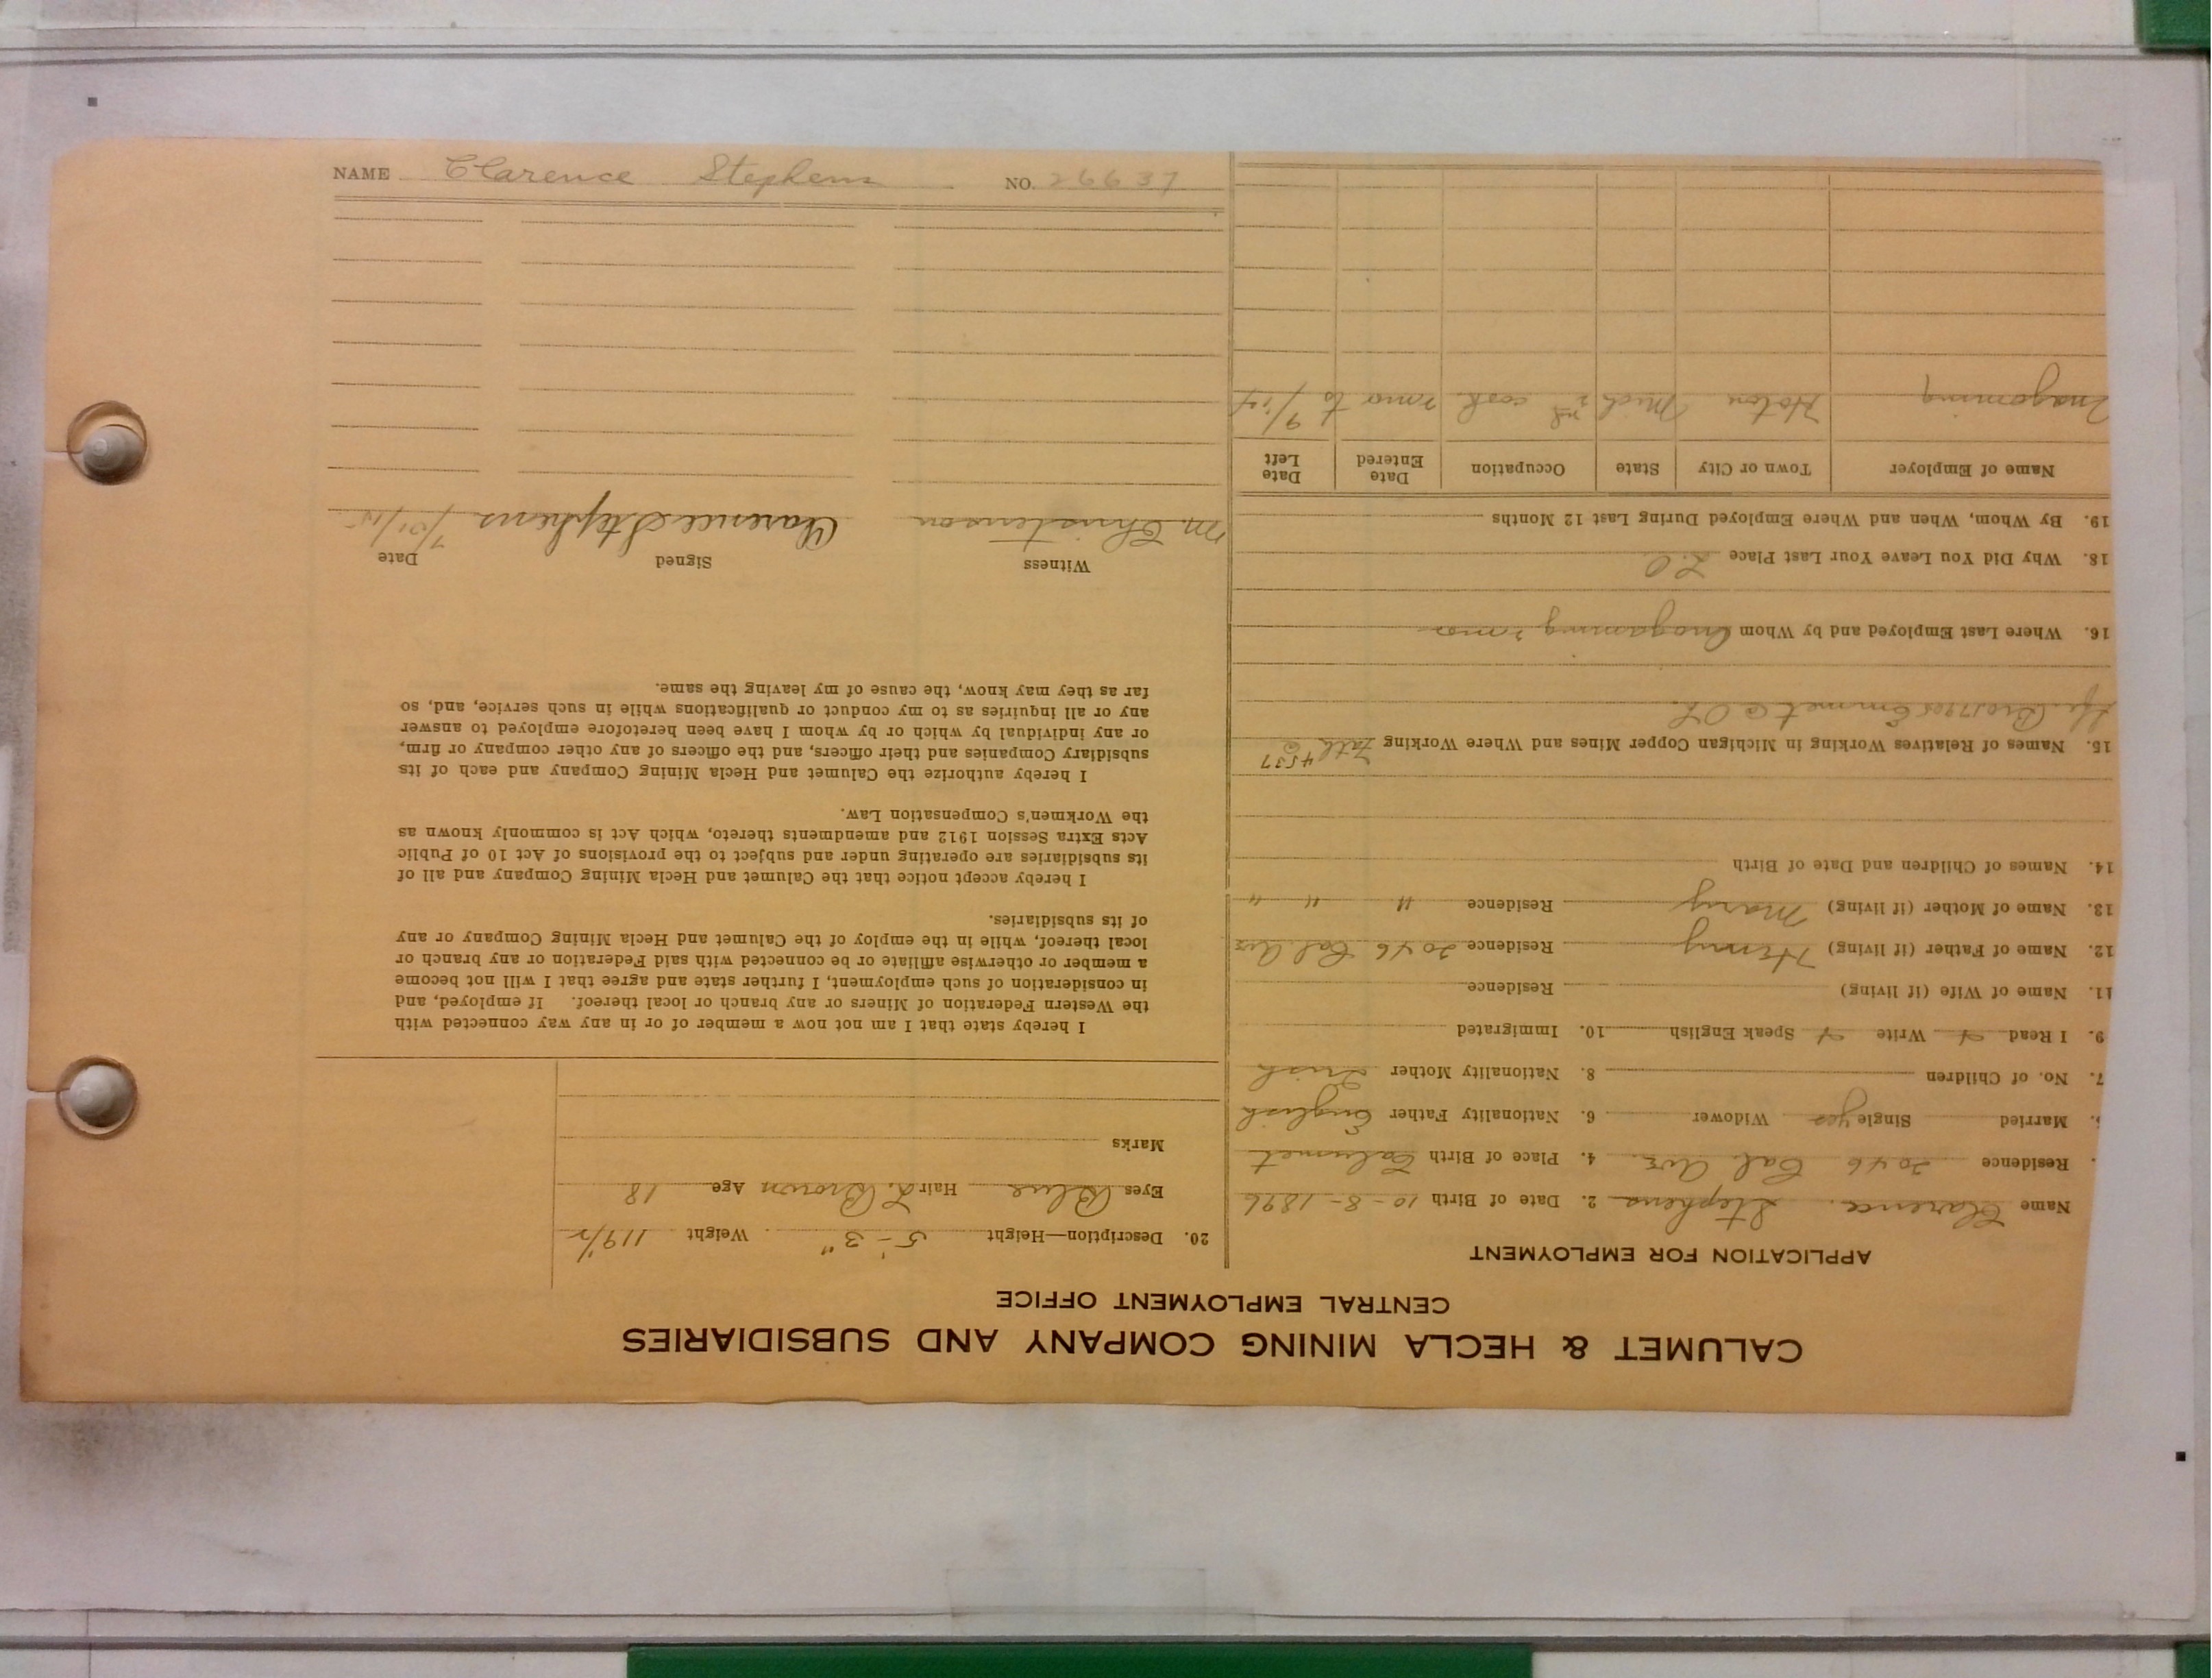 NAME Clarence Stephens NO. 26637
CALUMET & HECLA MINING COMPANY AND SUBSIDIARIES
CENTRAL EMPLOYMENT OFFICE
APPLICATION FOR EMPLOYMENT
Name Clarence Stephens 2. Date of Birth 10-8-1896
Residence 2046 Cal. Ave. 4. Place of Birth Calumet
Married Single yes Widower 6. Nationality Father English
7. No. of Children 8. Nationality Mother Irish
9. I Read Write Speak English 10. Immigrated
11. Name of Wife (if living) Residence
12. Name of Father (if living) Henry Residence 2046 Cal Ave
13. Name of Mother (if living) Mary Residence " " "
14. Names of Children and Date of Birth
15. Names of Relatives Working in Michigan Copper Mines and Where Working Fath 4537
Emmet
16. Where Last Employed and by Whom
18. Why Did You Leave Your Last Place
19. By Whom, When and Where Employed During Last 12 Months
Name of Employer Town or City State Occupation Date Entered Date Left
Mich cook to
20. Description—Height 5'-3" Weight 119½
Eyes Blue Hair L. Brown Age 18
Marks
I hereby state that I am not now a member of or in any way connected with
the Western Federation of Miners or any branch or local thereof. If employed, and
in consideration of such employment, I further state and agree that I will not become
a member or otherwise affiliate or be connected with said Federation or any branch or
local thereof, while in the employ of the Calumet and Hecla Mining Company or any
of its subsidiaries.
I hereby accept notice that the Calumet and Hecla Mining Company and all of
its subsidiaries are operating under and subject to the provisions of Act 10 of Public
Acts Extra Session 1912 and amendments thereto, which Act is commonly known as
the Workmen's Compensation Law.
I hereby authorize the Calumet and Hecla Mining Company and each of its
subsidiary Companies and their officers, and the officers of any other company or firm,
or any individual by which or by whom I have been heretofore employed to answer
any or all inquiries as to my conduct or qualifications while in such service, and, so
far as they may know, the cause of my leaving the same.
Witness Signed Date
M Christenson Clarence Stephens